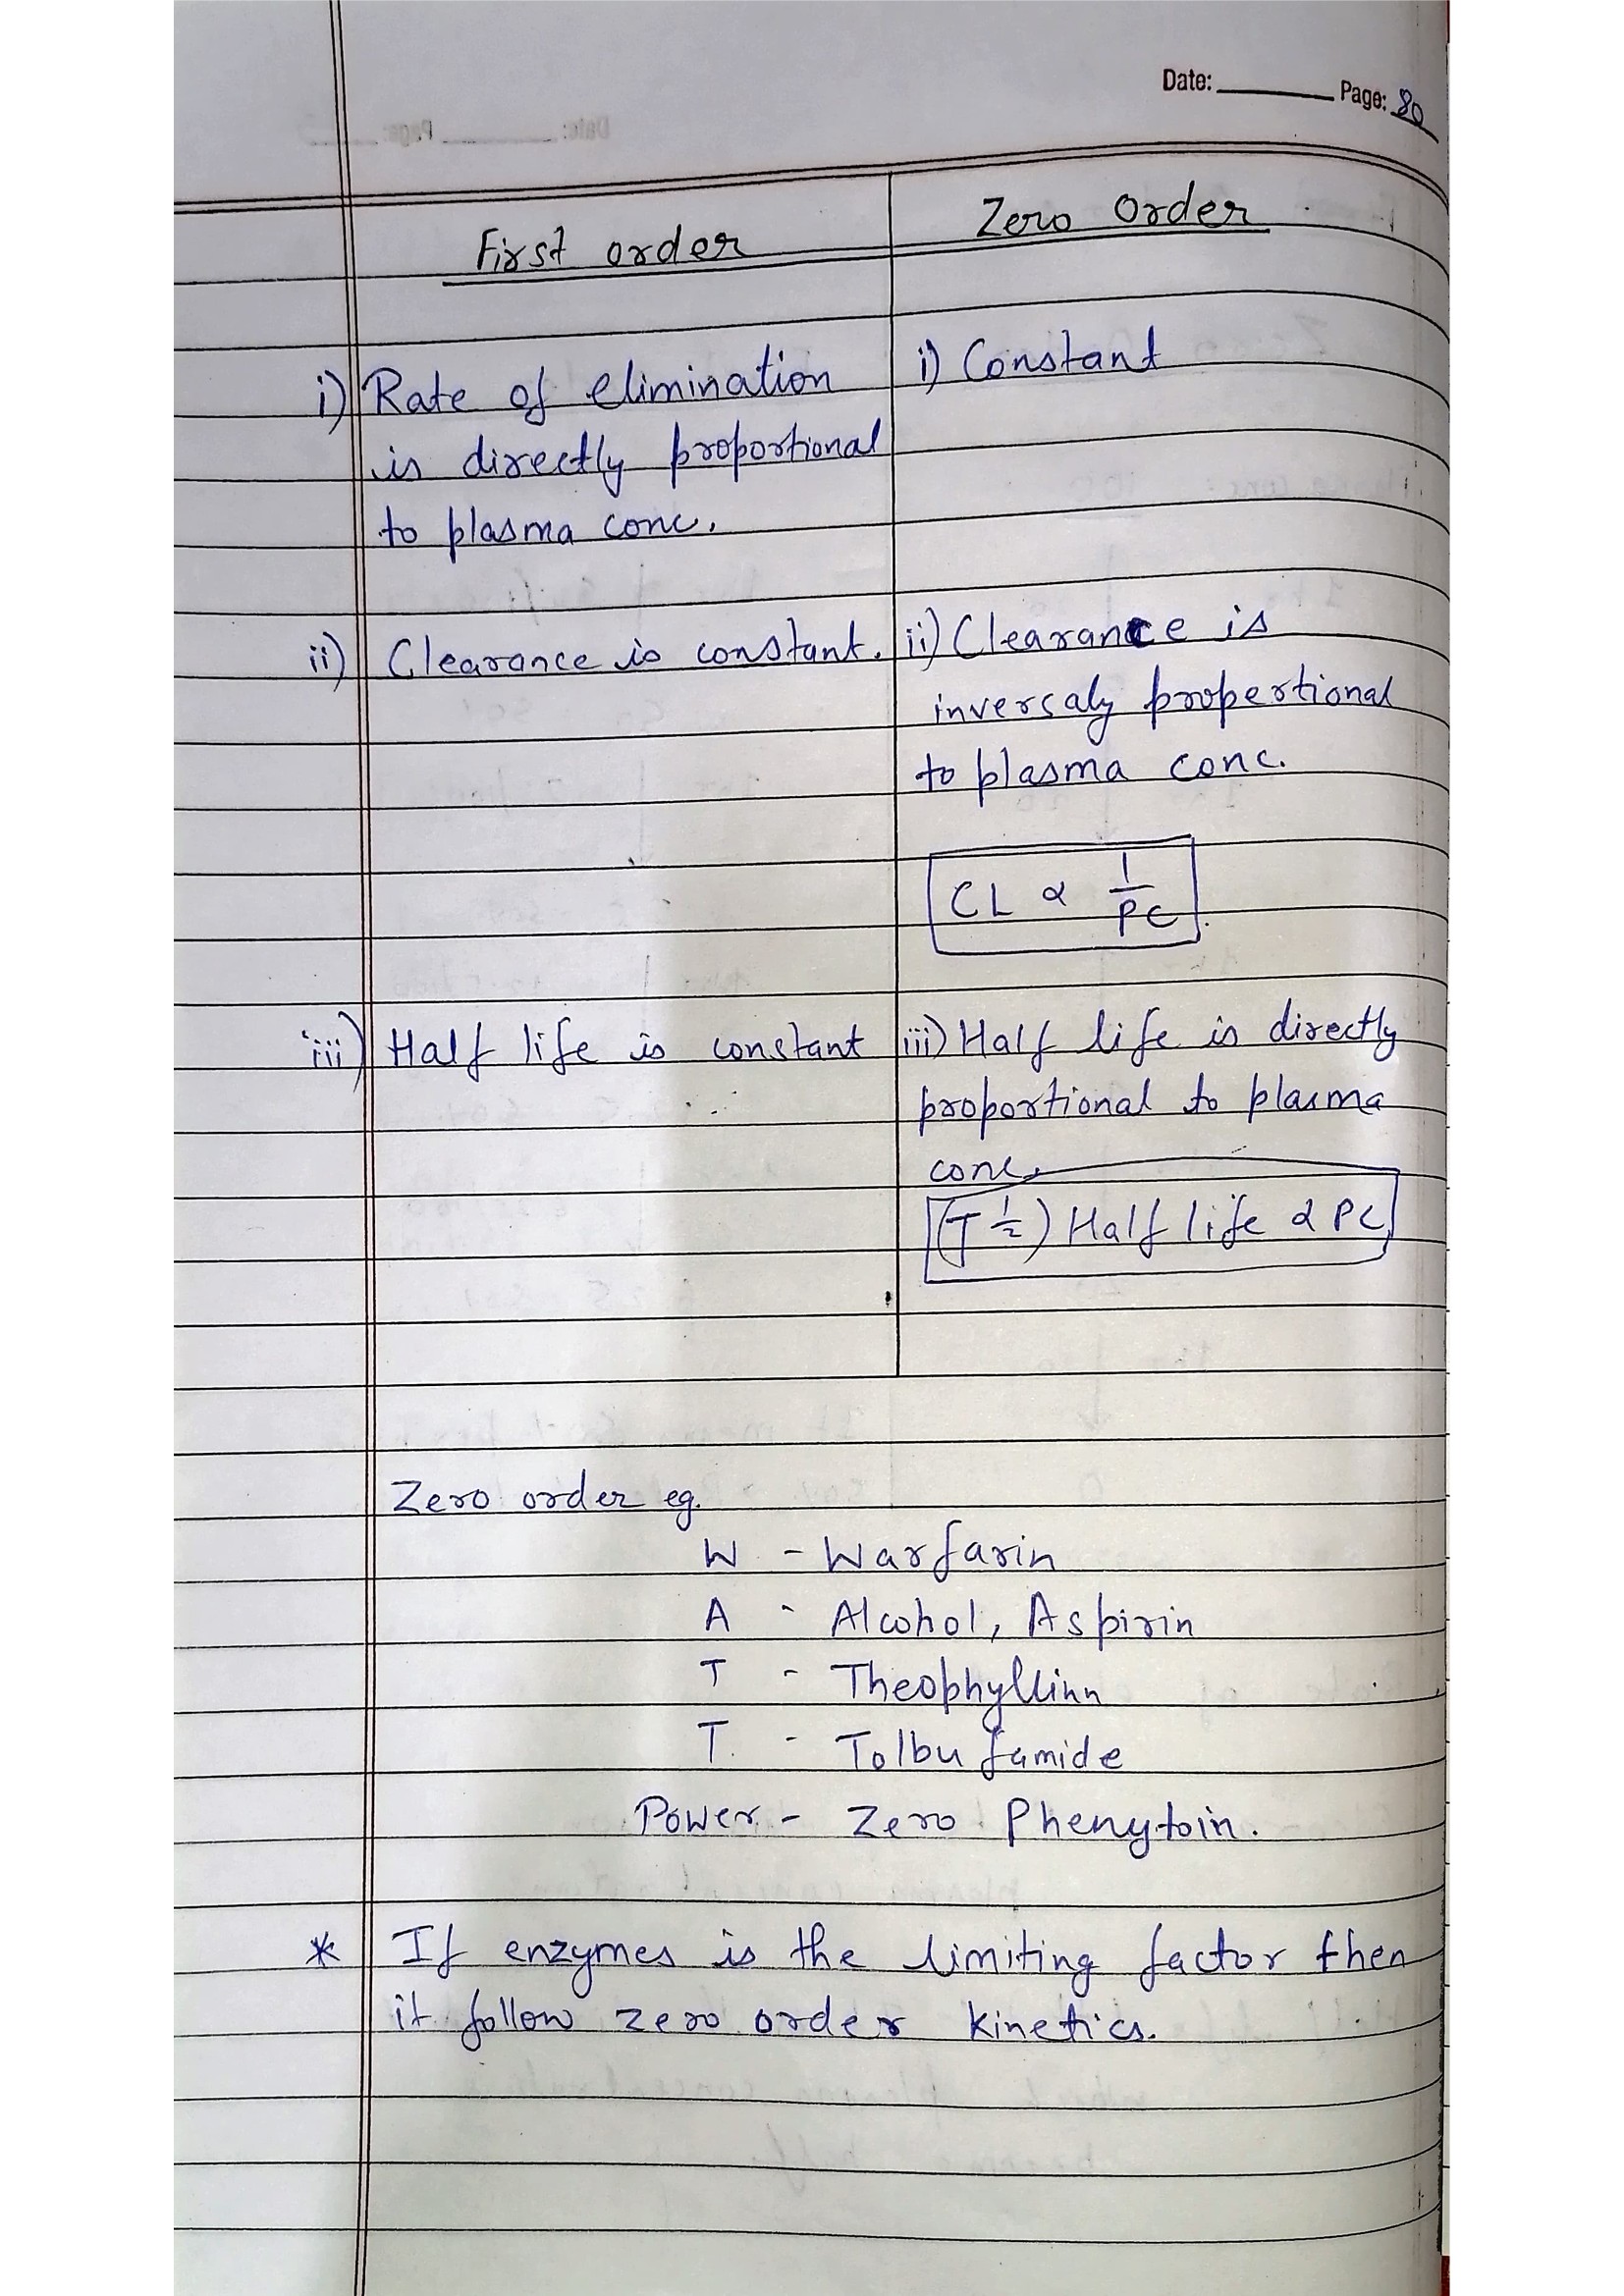 Date: Page: 80
First order
Zero Order
i) Rate of elimination
is directly proportional
to plasma conc.
i) Constant
ii) Clearance is constant.
ii) Clearance is
inversaly propertional
to plasma conc.
CL α 1/PC
iii) Half life is constant
iii) Half life is directly
proportional to plasma
conc.
(T 1/2) Half life α PC
Zero order eg.
W - Warfarin
A - Alcohol, Aspirin
T - Theophyllinn
T. - Tolbufamide
Power - Zero Phenytoin.
* If enzymes is the limiting factor then
it follow zero order kinetics.